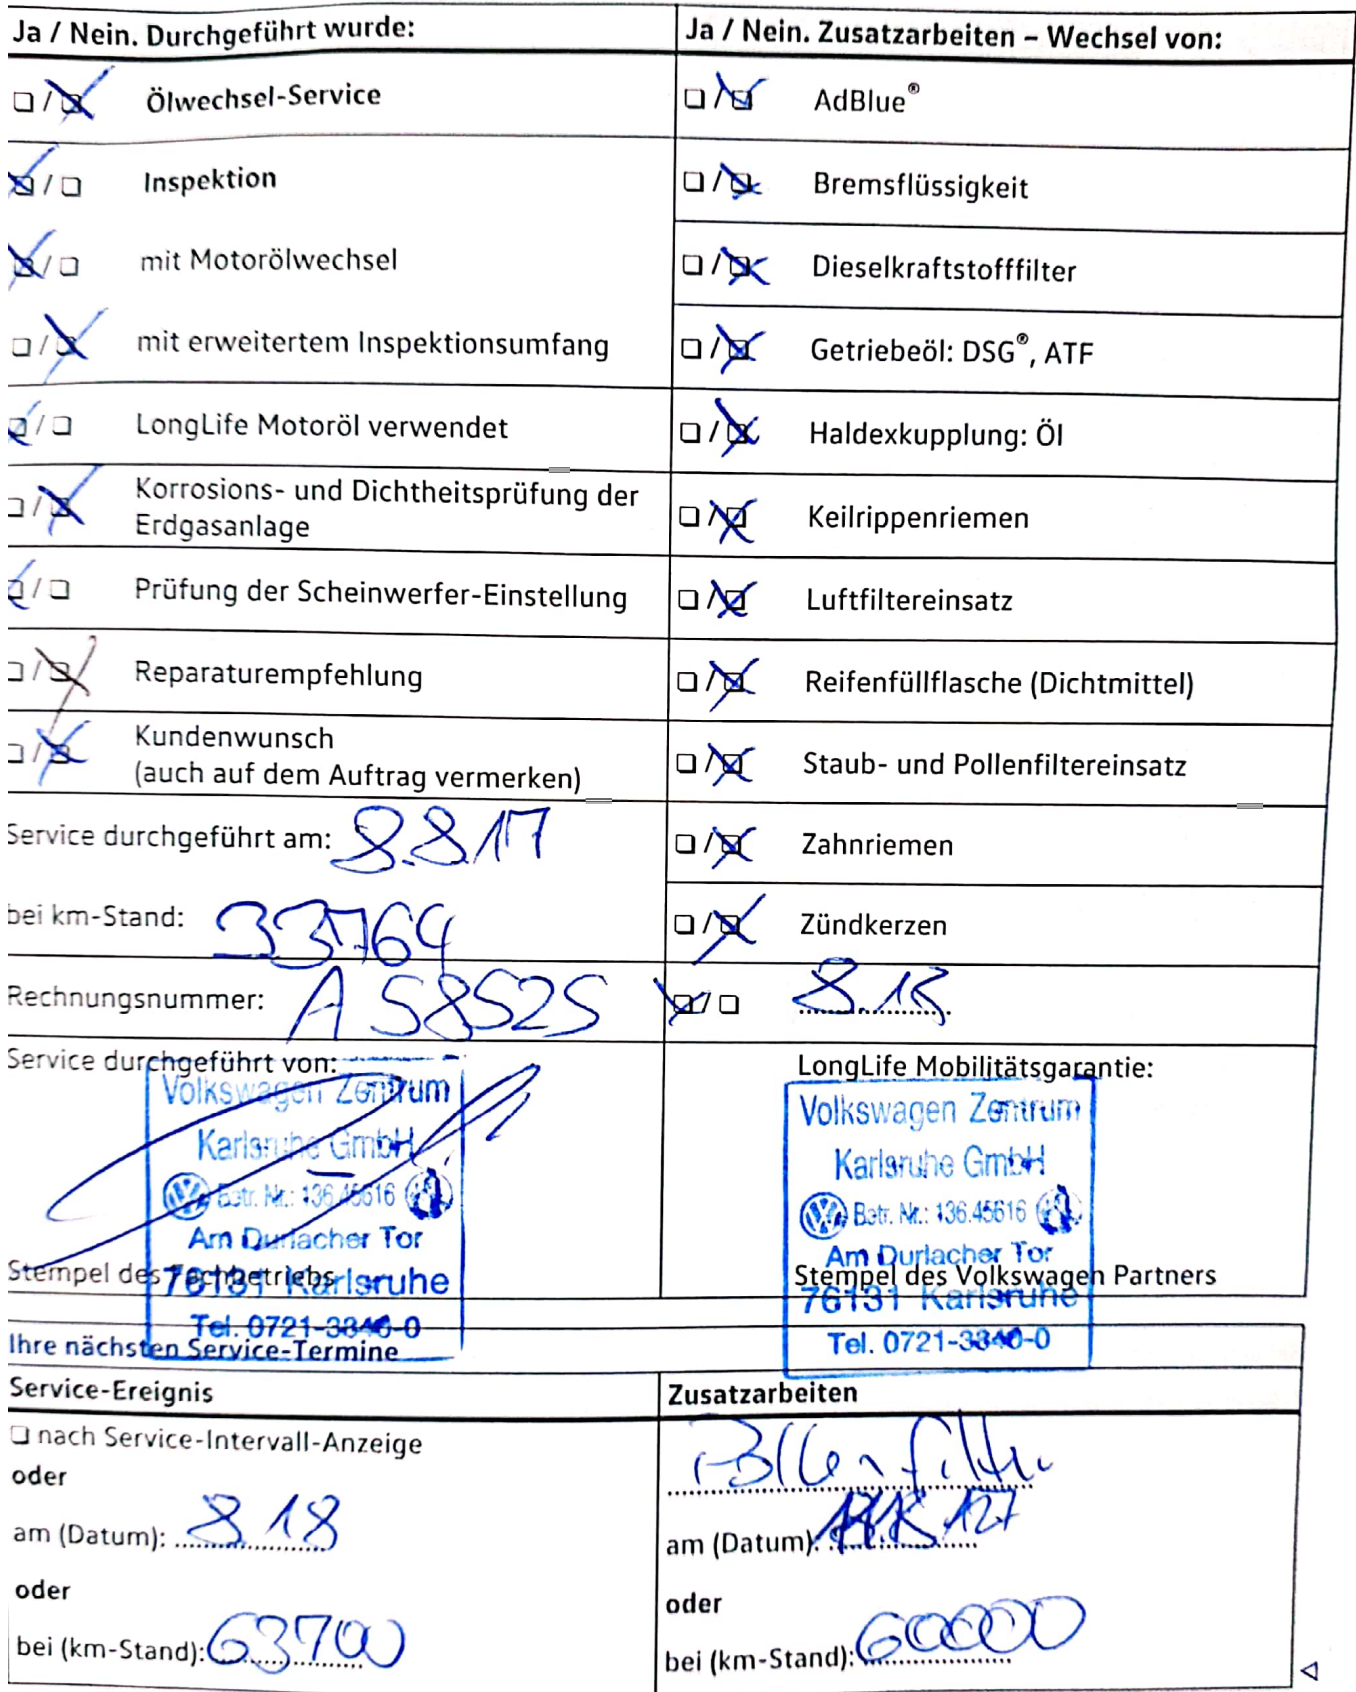 Ja / Nein. Durchgeführt wurde:
Ölwechsel-Service
Inspektion
mit Motorölwechsel
mit erweitertem Inspektionsumfang
LongLife Motoröl verwendet
Korrosions- und Dichtheitsprüfung der
Erdgasanlage
Prüfung der Scheinwerfer-Einstellung
Reparaturempfehlung
Kundenwunsch
(auch auf dem Auftrag vermerken)
Service durchgeführt am: 8.8.17
bei km-Stand: 33764
Rechnungsnummer: A 58525
Service durchgeführt von:
Volkswagen Zentrum
Karlsruhe GmbH
Betr. Nr.: 136.45616
Am Durlacher Tor
76131 Karlsruhe
Stempel des Fachbetriebs
Tel. 0721-3340-0
Ja / Nein. Zusatzarbeiten – Wechsel von:
AdBlue®
Bremsflüssigkeit
Dieselkraftstofffilter
Getriebeöl: DSG®, ATF
Haldexkupplung: Öl
Keilrippenriemen
Luftfiltereinsatz
Reifenfüllflasche (Dichtmittel)
Staub- und Pollenfiltereinsatz
Zahnriemen
Zündkerzen
LongLife Mobilitätsgarantie:
Volkswagen Zentrum
Karlsruhe GmbH
Betr. Nr.: 136.45616
Am Durlacher Tor
Stempel des Volkswagen Partners
76131 Karlsruhe
Tel. 0721-3340-0
Ihre nächsten Service-Termine
Service-Ereignis
nach Service-Intervall-Anzeige
oder
am (Datum): 8.18
oder
bei (km-Stand): 63700
Zusatzarbeiten
Pollenfilter
am (Datum):
oder
bei (km-Stand): 60000